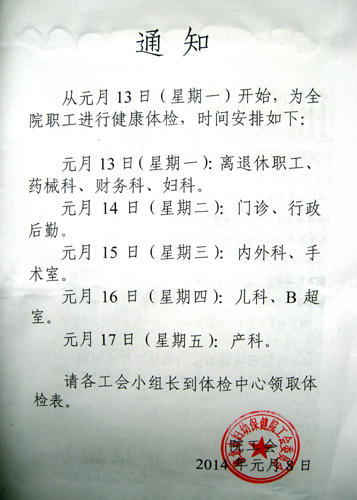 通 知
从元月 13 日（星期一）开始，为全
院职工进行健康体检，时间安排如下：
元月 13 日（星期一）：离退休职工、
药械科、财务科、妇科。
元月 14 日（星期二）：门诊、行政
后勤。
元月 15 日（星期三）：内外科、手
术室。
元月 16 日（星期四）：儿科、B 超
室。
元月 17 日（星期五）：产科。
请各工会小组长到体检中心领取体
检表。
妇幼保健院工会委员会
院工会
2014 年元月 8 日